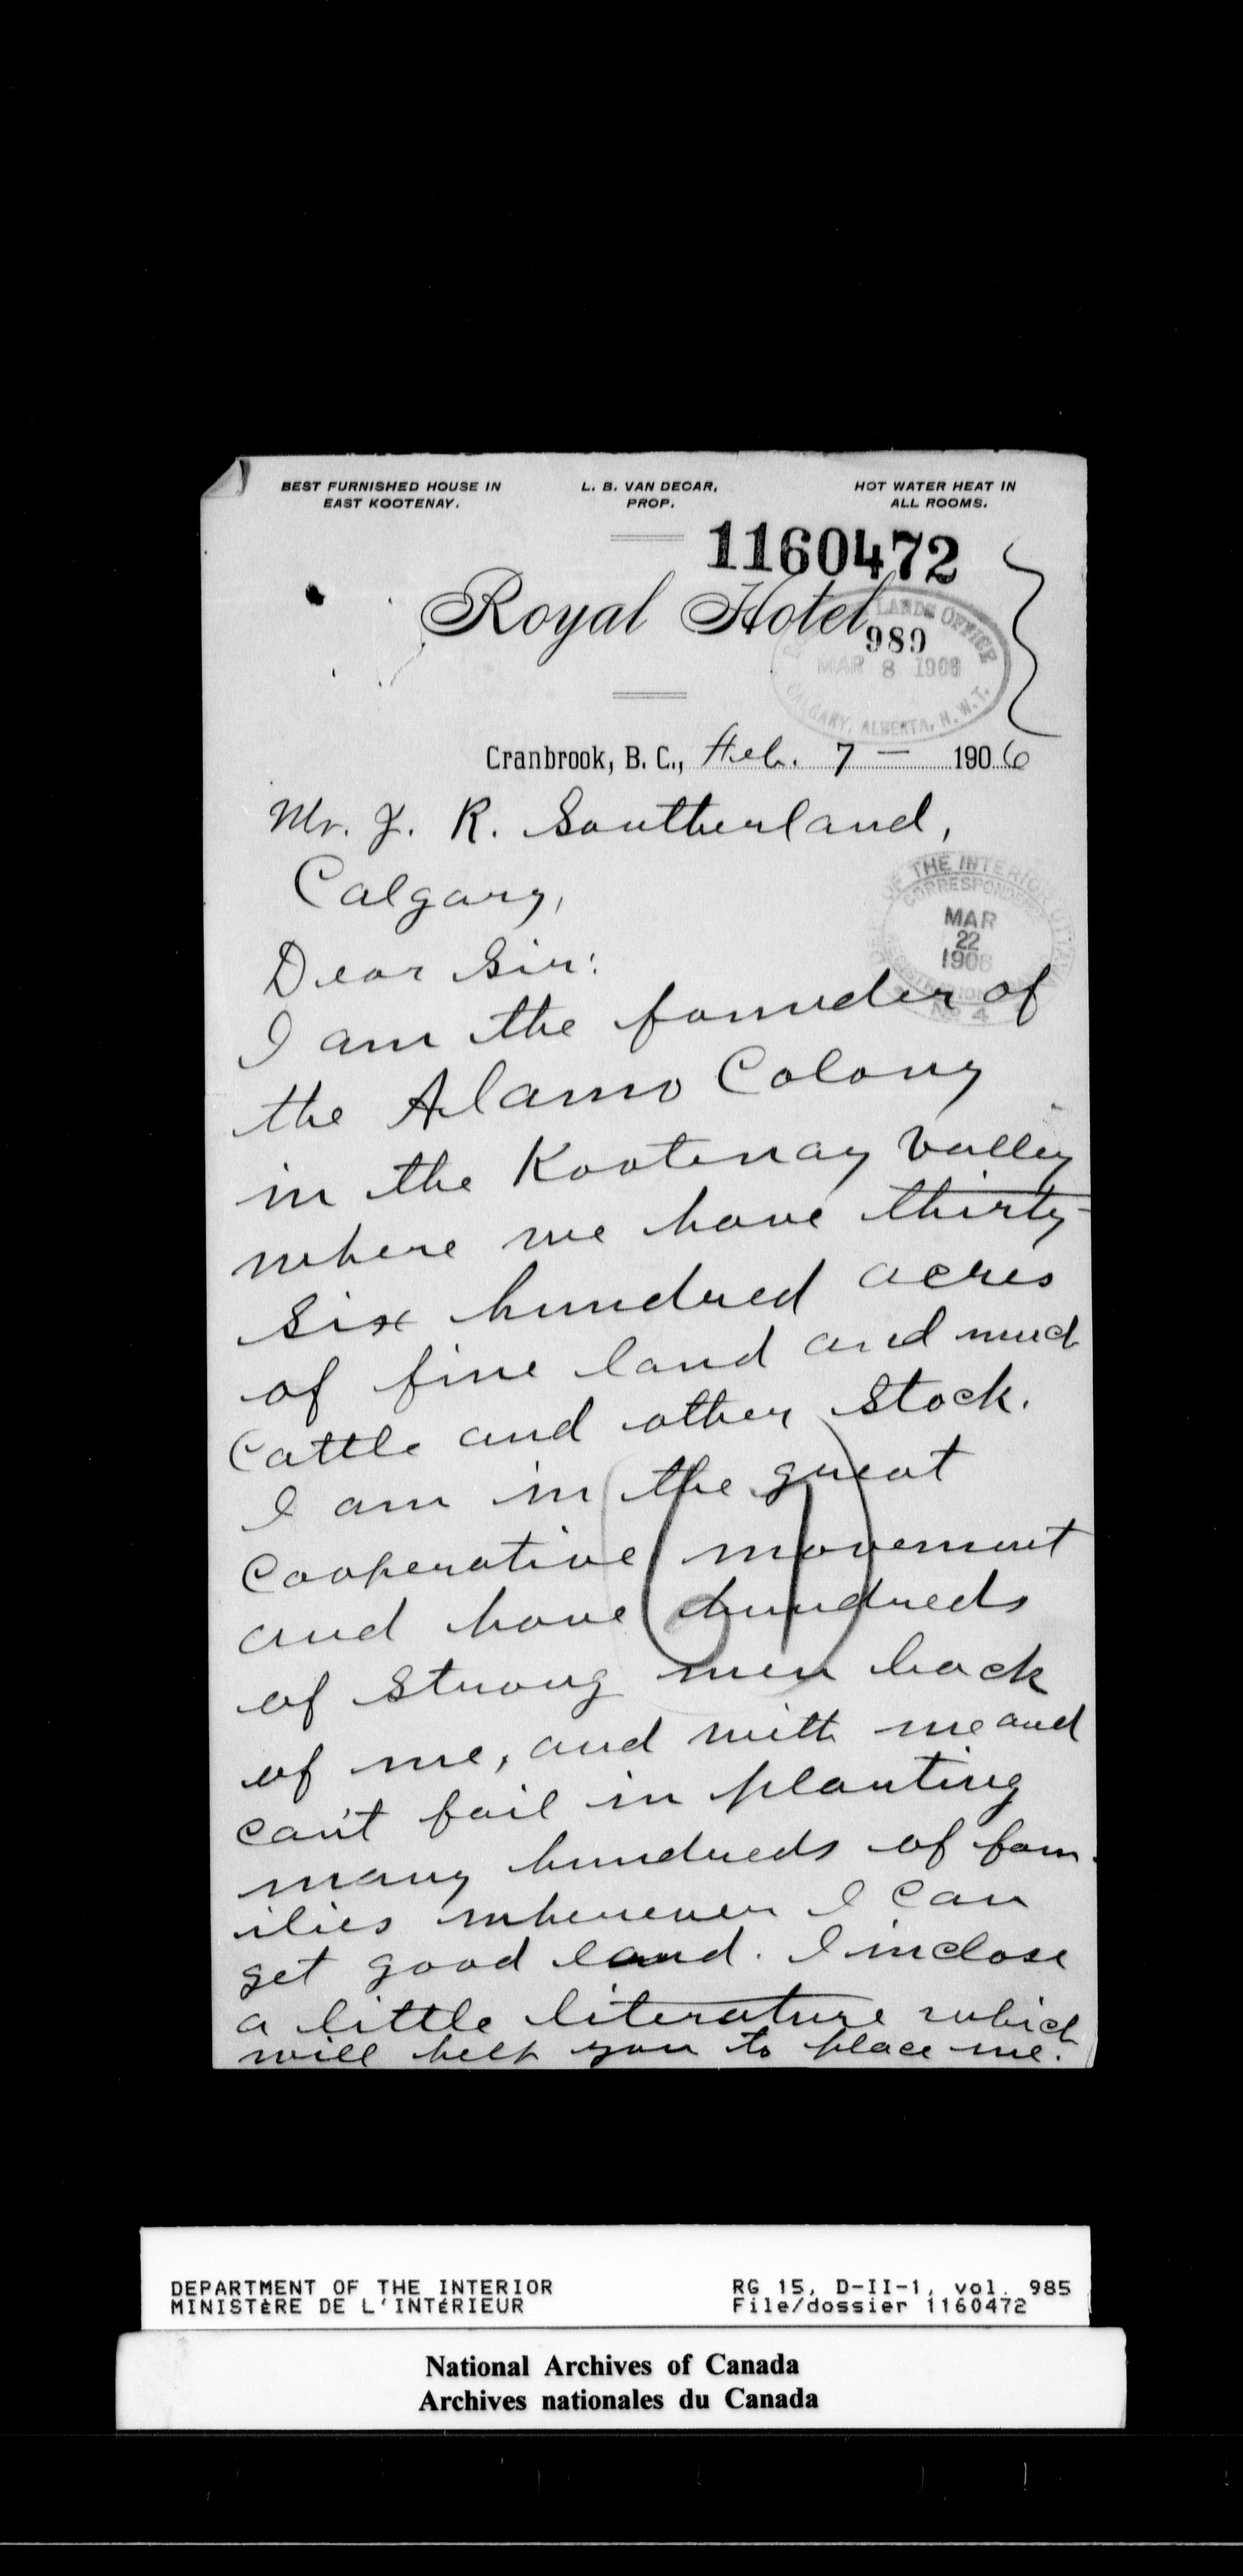 BEST FURNISHED HOUSE IN
EAST KOOTENAY.
L. B. VAN DECAR,
PROP.
HOT WATER HEAT IN
ALL ROOMS.
1160472
Royal Hotel
LANDS OFFICE
989
MAR 8 1906
CALGARY, ALBERTA, N.W.T.
Cranbrook, B. C., Feb. 7 — 1906
Mr. J. R. Southerland,
Calgary,
OF THE INTERIOR OTTAWA
CORRESPONDENCE
MAR
22
1906
REGISTRATION
No 4
Dear Sir:
I am the founder of
the Alamo Colony
in the Kootenay Valley
where we have thirty-
six hundred acres
of fine land and much
Cattle and other Stock.
I am in the great
Cooperative movement
and have hundreds
of strong men back
of me, and with me and
can't fail in planting
many hundreds of fam-
ilies whenever I can
get good land. I inclose
a little literature which
will help you to place me.
DEPARTMENT OF THE INTERIOR
MINISTÈRE DE L'INTÉRIEUR
RG 15, D-II-1, vol. 985
File/dossier 1160472
National Archives of Canada
Archives nationales du Canada